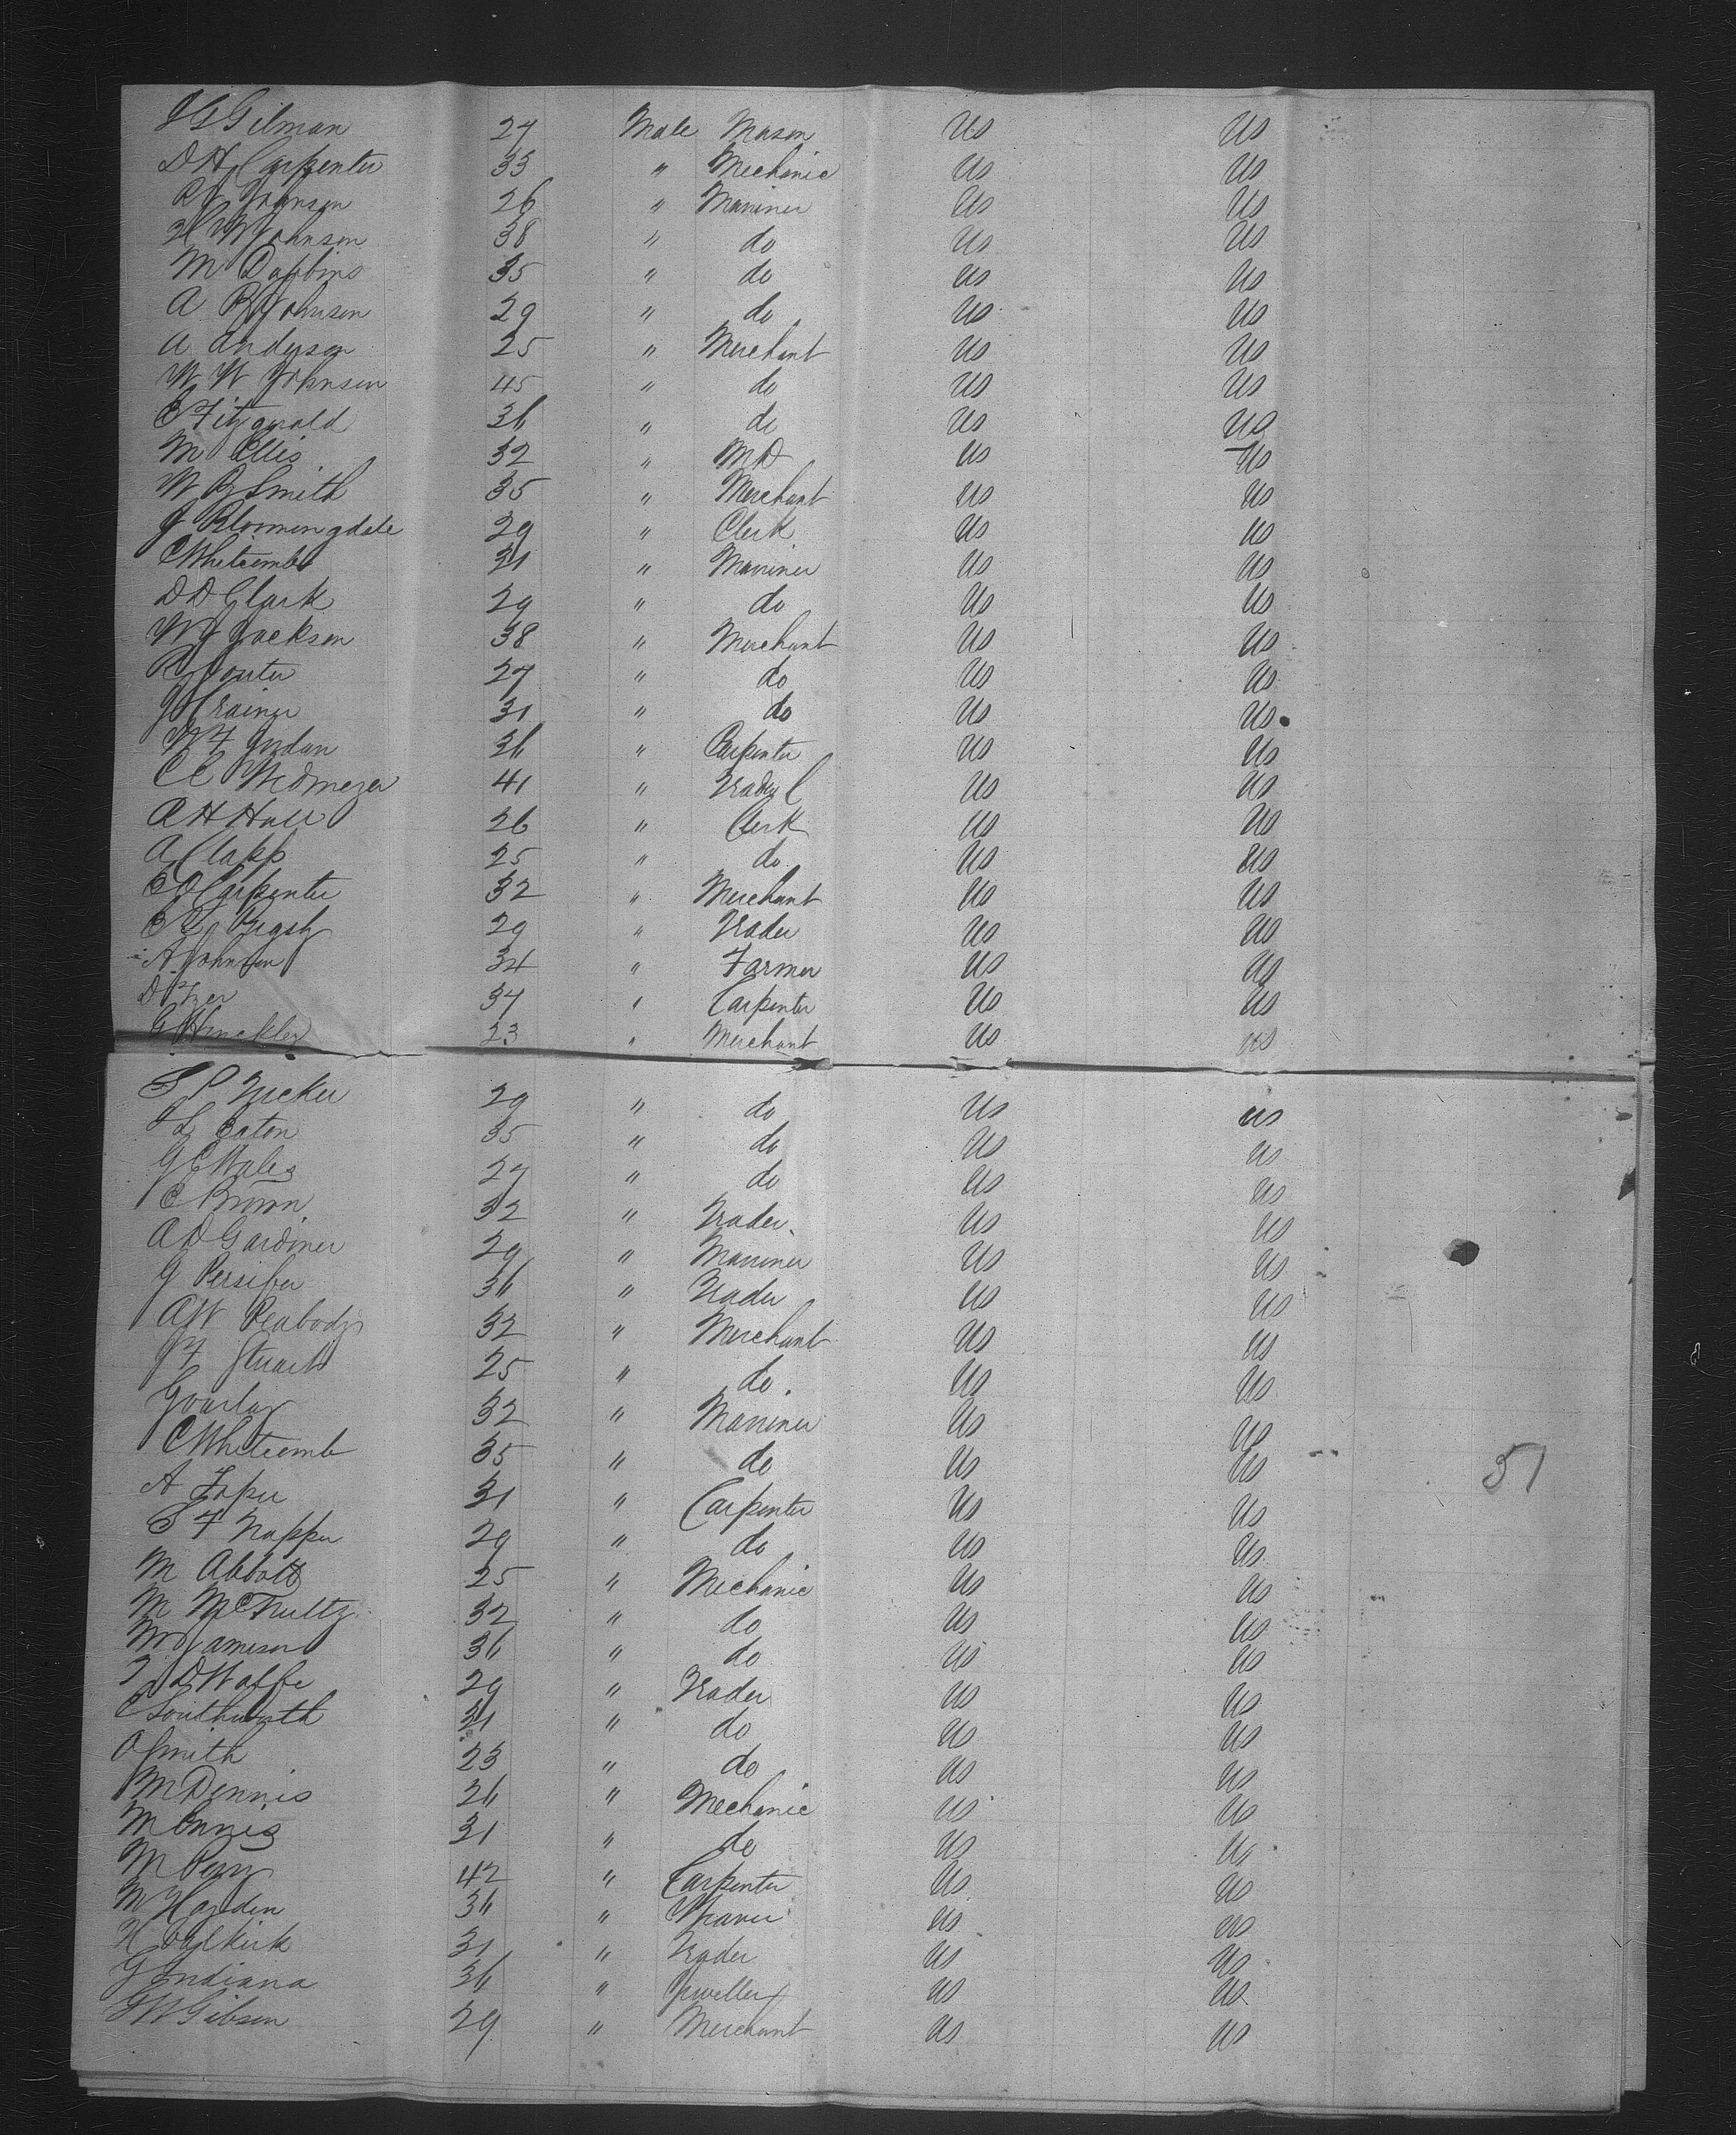 J G Gilman 27 Male Mason US US
D H Carpenter 33 " Mechanic US US
R J Johnson 26 " Mariner US US
H W Johnson 38 " do US US
M Dobbins 35 " do US US
A B Johnson 29 " do US US
A Anderson 25 " Merchant US US
W W Johnson 45 " do US US
E Fitzgerald 36 " do US US
M Ellis 32 " MD US US
W B Smith 35 " Merchant US US
J Bloomingdale 29 " Clerk US US
C Whitcomb 31 " Mariner US US
D D Clark 29 " do US US
W J Jackson 38 " Merchant US US
R Porter 27 " do US US
J Crainer 31 " do US US
W F Jordan 36 " Carpenter US US
C C 41 " Trader US US
A H Hall 26 " Clerk US US
A Clapp 25 " do US US
E D Carpenter 32 " Merchant US US
29 " Trader US US
A Johnson 34 " Farmer US US
D 37 " Carpenter US US
G Hinckley 23 " Merchant US US
S P Tucker 29 " do US US
L Eaton 35 " do US US
G C Wales 27 " do US US
C Brown 32 " Trader US US
A D Gardiner 29 " Mariner US US
G Persifer 36 " Trader US US
A W Peabody 32 " Merchant US US
J F Stuart 25 " do US US
Gourlay 32 " Mariner US US
C Whitcomb 35 " do US US
51
A Toper 31 " Carpenter US US
S F Napper 29 " do US US
M Abbott 25 " Mechanic US US
M 32 " do US US
M Jameson 36 " do US US
29 " Trader US US
C Southworth 31 " do US US
O Smith 23 " do US US
M Dennis 26 " Mechanic US US
M Ennis 31 " do US US
M Perry 42 " Carpenter US US
M Hayden 36 " Weaver US US
31 " Trader US US
G Indiana 36 " Jweller US US
G W Gibson 29 " Merchant US US